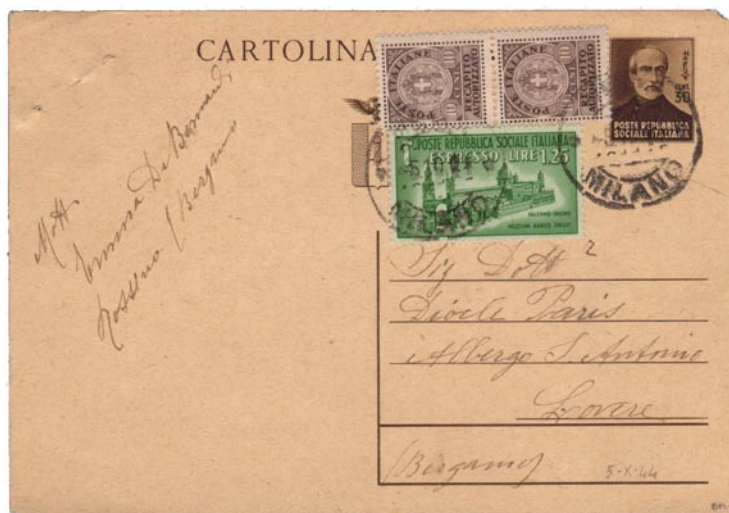 CARTOLINA
POSTE ITALIANE
10 CENT. 10
RECAPITO AUTORIZZATO
POSTE ITALIANE
10 CENT. 10
RECAPITO AUTORIZZATO
CENT.
30
POSTE REPUBBLICA
SOCIALE ITALIANA
POSTE REPUBBLICA SOCIALE ITALIANA
ESPRESSO LIRE 1,25
PALERMO-DUOMO
MILANO
MILANO
Emma De Bernardi
(Bergamo
Sig Dott
2
Diocle Paris
Albergo S. Antonio
Lovere
(Bergamo)
5-X-44